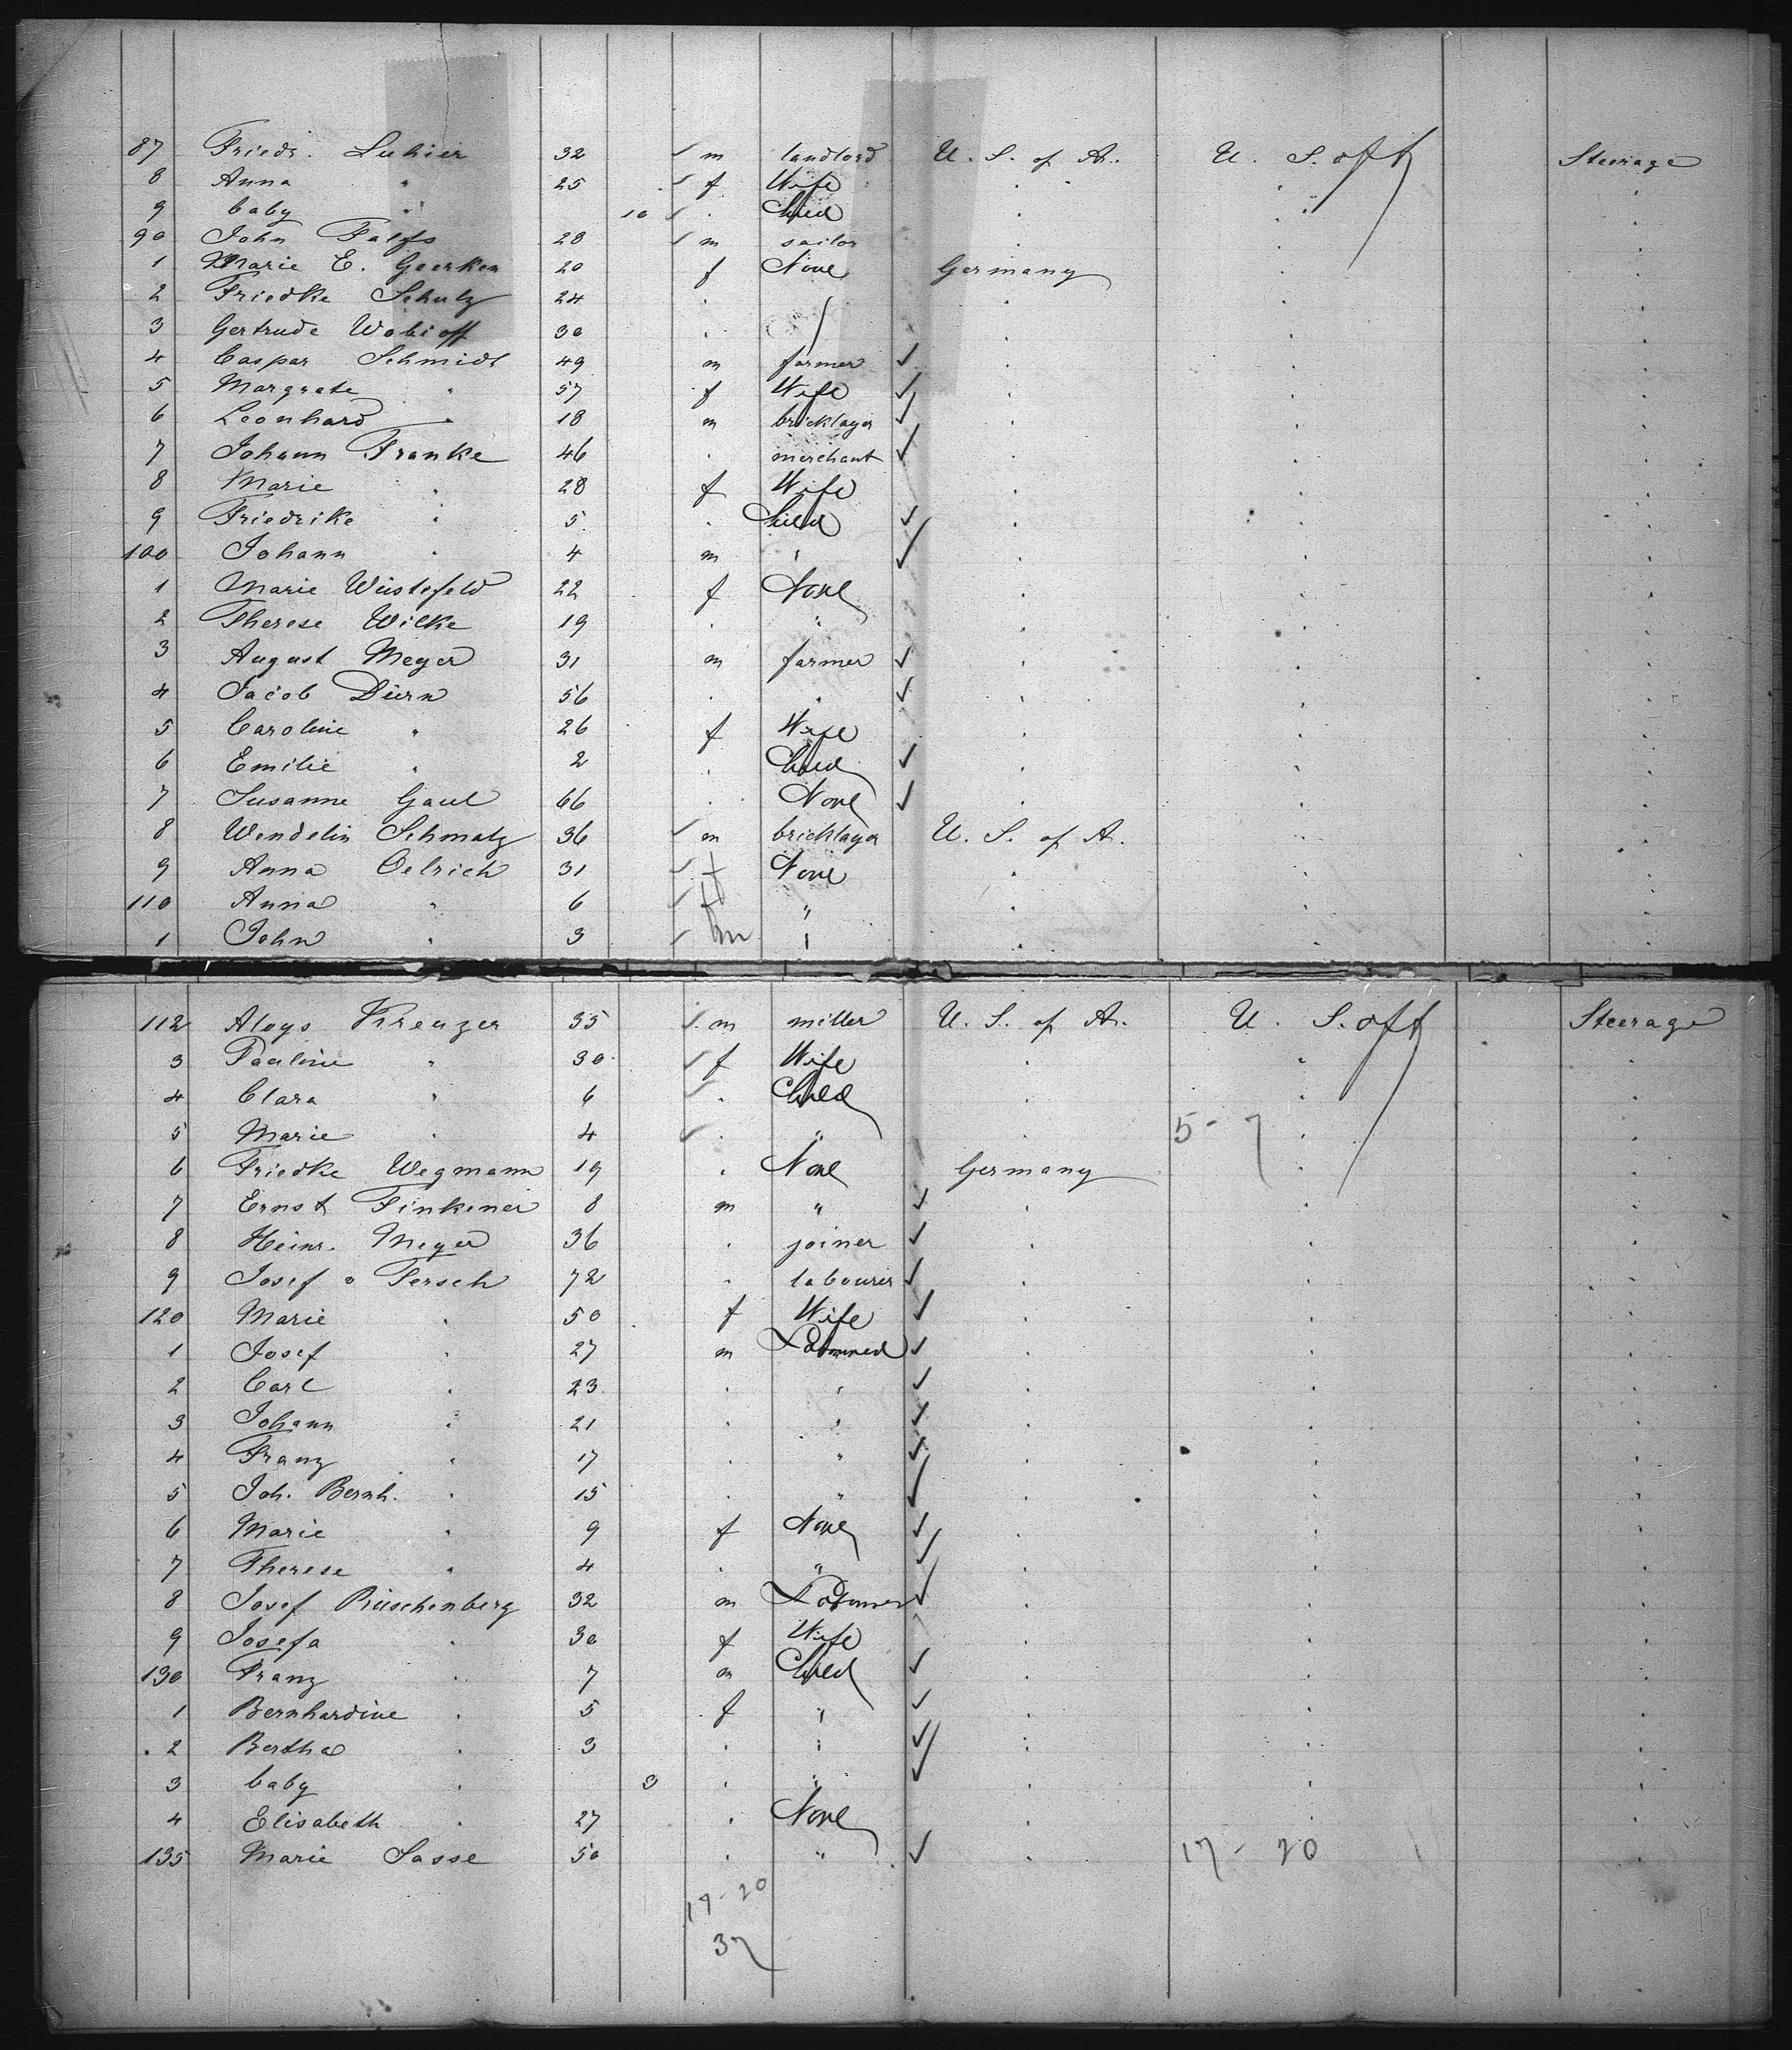 87 Friedr. Luhier 32 m landlord U. S. of A. U. S. of A Steerage
8 Anna " 25 f Wife
9 baby " 10 Child
90 John 28 m sailor
1 Marie E. Geerken 20 f None Germany
2 Friedke Schulz 24
3 Gertrude 30
4 Caspar Schmidt 49 m farmer ✓
5 Margrate " 57 f Wife ✓
6 Leonhard " 18 m bricklayer ✓
7 Johann Franke 46 merchant ✓
8 Marie " 28 f Wife
9 Friedrike " 5 Child ✓
100 Johann " 4 m " ✓
1 Marie Wüstefeld 22 f None
2 Therese Wilke 19 "
3 August Meyer 31 m farmer ✓
4 Jacob Dürn 56 " ✓
5 Caroline " 26 f Wife
6 Emilie " 2 Child ✓
7 Susanne Gaul 66 None ✓
8 Wendelin Schmalz 36 m bricklayer U. S. of A.
9 Anna Oelrich 31 f None
110 Anna " 6 f "
1 John " 3 m "
112 Aloys Kreuzer 35 m miller U. S. of A. U. S. of A Steerage
3 Pauline " 30 f Wife
4 Clara " 6 Child
5 Marie " 4 " 5-7
6 Friedke Wegmann 19 None Germany
7 Ernst Finkener 8 m " ✓
8 Heinr. Meyer 36 joiner ✓
9 Josef Tersch 72 labourer ✓
120 Marie " 50 f Wife ✓
1 Josef " 27 m ✓
2 Carl " 23 " ✓
3 Johann " 21 " ✓
4 Franz " 17 " ✓
5 Joh. Bernh. " 15 " ✓
6 Marie " 9 f None ✓
7 Therese " 4 " ✓
8 Josef Rüschenberg 32 m ✓
9 Josefa " 30 f Wife
130 Franz " 7 m Child ✓
1 Bernhardine " 5 f " ✓
2 Bertha " 3 " ✓
3 baby " 3 " ✓
4 Elisabeth " 27 None
135 Marie Sasse 50 " ✓ 17-20
17-20
37